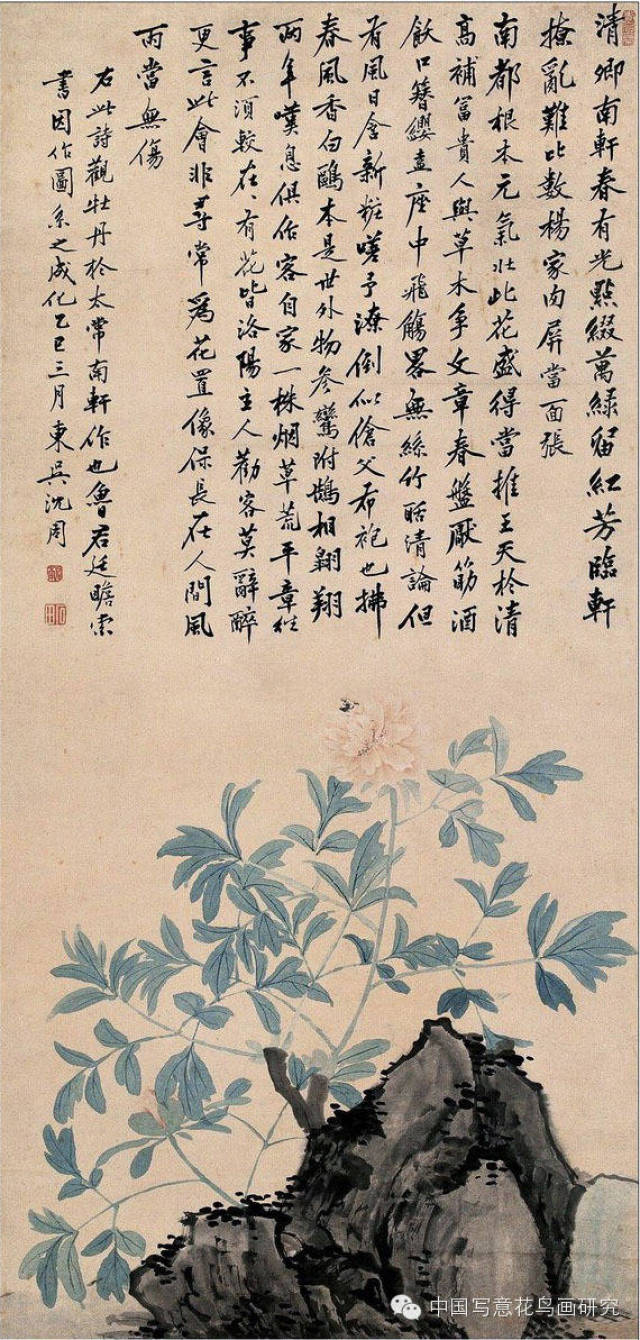 清卿南軒春有光點綴萬綠留紅芳臨軒
撩亂難比數楊家肉屏當面張
南都根本元氣壯此花盛得當推王天於清
高補富貴人與草木爭文章春盤厭筋酒
飫口簪纓盍座中飛觴畧無絲竹聒清論但
看風日含新粧嗟予潦倒似傖父布袍也拂
春風香白鷗本是世外物參鸞附鵠相翱翔
兩年嘆息俱作客自家一株烟草荒平章往
事不須較在在有花皆洛陽主人勸客莫辭醉
更言此會非尋常爲花置像保長在人間風
雨當無傷
右此詩觀牡丹於太常南軒作也魯君廷瞻索
書因作圖系之成化乙巳三月東吳沈周
中国写意花鸟画研究